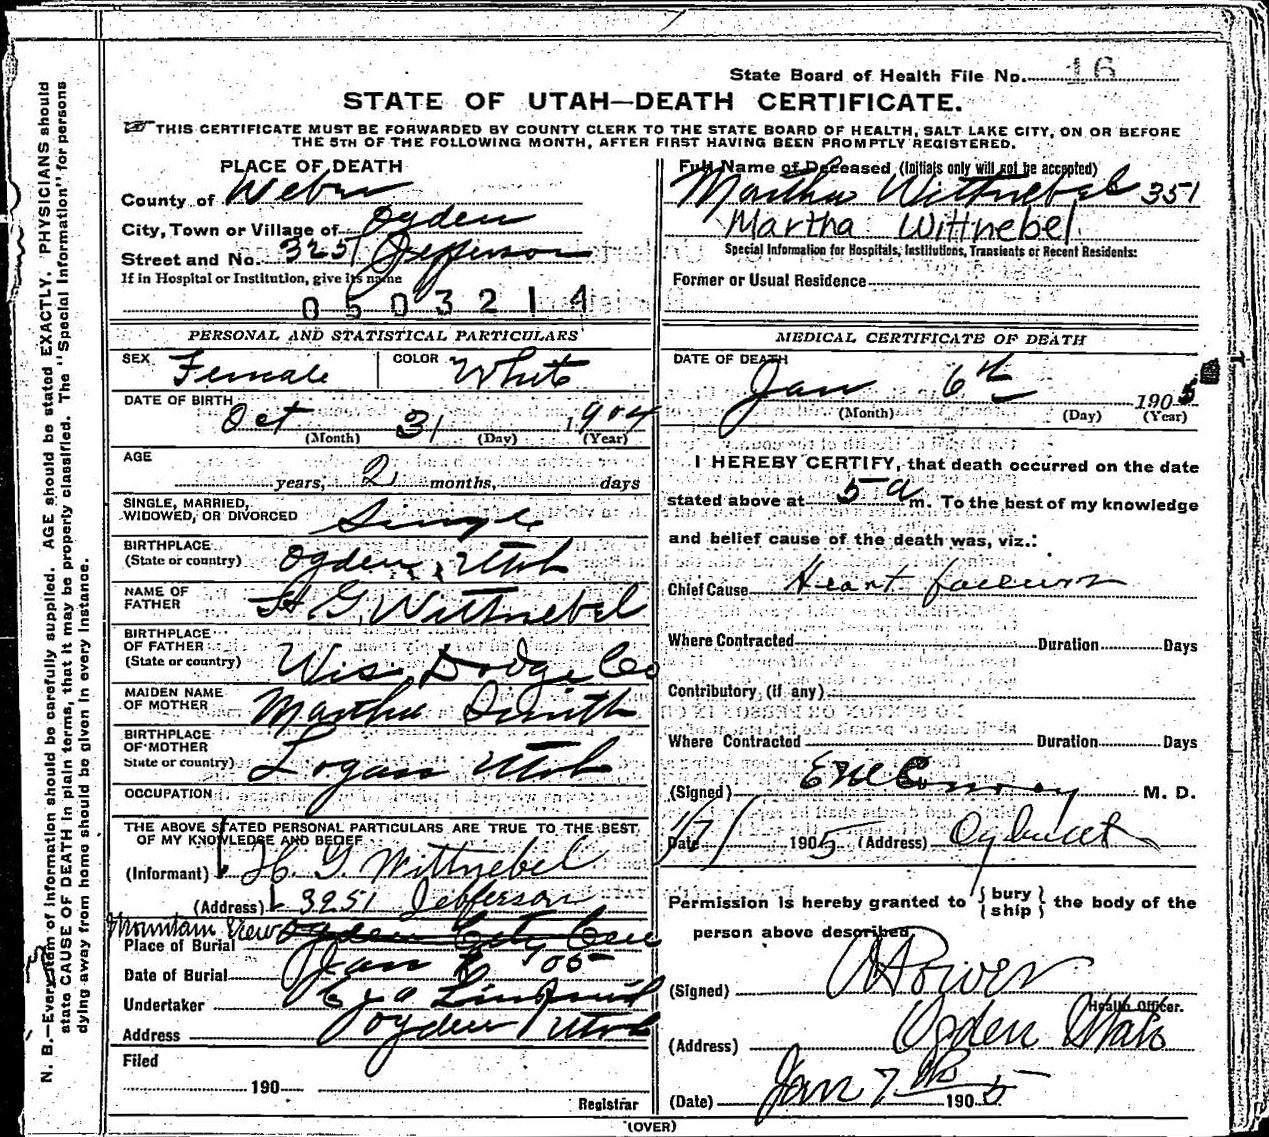 State Board of Health File No. 16
STATE OF UTAH—DEATH CERTIFICATE.
THIS CERTIFICATE MUST BE FORWARDED BY COUNTY CLERK TO THE STATE BOARD OF HEALTH, SALT LAKE CITY, ON OR BEFORE
THE 5TH OF THE FOLLOWING MONTH, AFTER FIRST HAVING BEEN PROMPTLY REGISTERED.
PLACE OF DEATH
County of Weber
City, Town or Village of Ogden
Street and No. 3251 Jefferson
If in Hospital or Institution, give its name
0503214
Full Name of Deceased (Initials only will not be accepted)
Martha Wittnebel 351
Martha Wittnebel
Special Information for Hospitals, Institutions, Transients or Recent Residents:
Former or Usual Residence
PERSONAL AND STATISTICAL PARTICULARS
SEX Female COLOR White
DATE OF BIRTH
Oct 31 1904
(Month) (Day) (Year)
AGE
years, 2 months, days
SINGLE, MARRIED,
WIDOWED, OR DIVORCED Single
BIRTHPLACE
(State or country) Ogden, Utah
NAME OF
FATHER H. G. Wittnebel
BIRTHPLACE
OF FATHER
(State or country) Wis. Dodge Co
MAIDEN NAME
OF MOTHER Martha Smith
BIRTHPLACE
OF MOTHER
State or country) Logan Utah
OCCUPATION
THE ABOVE STATED PERSONAL PARTICULARS ARE TRUE TO THE BEST
OF MY KNOWLEDGE AND BELIEF
(Informant) H. G. Wittnebel
(Address) 3251 Jefferson
Mountain View Ogden City Cem
Place of Burial
Date of Burial Jan 05
Undertaker
Address Ogden Utah
Filed
190
Registrar
MEDICAL CERTIFICATE OF DEATH
DATE OF DEATH
Jan 6th 1905
(Month) (Day) (Year)
I HEREBY CERTIFY, that death occurred on the date
stated above at 5 a m. To the best of my knowledge
and belief cause of the death was, viz.:
Chief Cause Heart failure
Where Contracted Duration Days
Contributory (if any)
Where Contracted Duration Days
(Signed) M. D.
Date 1/7/ 1905 (Address) Ogden Ut
Permission is hereby granted to { bury
ship } the body of the
person above described.
(Signed)
Health Officer.
(Address) Ogden Utah
(Date) Jan 7th 1905
(OVER)
N. B.—Every item of information should be carefully supplied. AGE should be stated EXACTLY. PHYSICIANS should
state CAUSE OF DEATH in plain terms, that it may be properly classified. The "Special Information" for persons
dying away from home should be given in every instance.